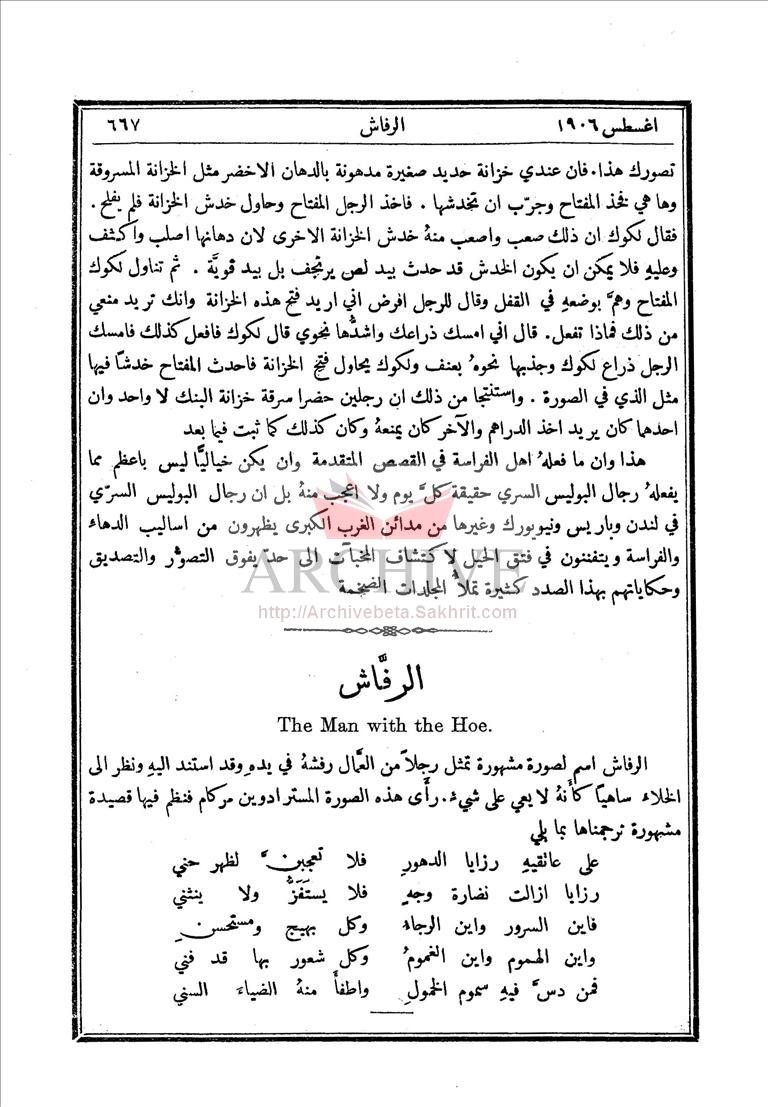 اغسطس ١٩٠٦ الرفاش ٦٦٧
تصورك هذا. فان عندي خزانة حديد صغيرة مدهونة بالدهان الاخضر مثل الخزانة المسروقة
وها هي فخذ المفتاح وجرّب ان تخدشها. فاخذ الرجل المفتاح وحاول خدش الخزانة فلم يفلح.
فقال لكوك ان ذلك صعب واصعب منهُ خدش الخزانة الاخرى لان دهانها اصلب واكثف
وعليهِ فلا يمكن ان يكون الخدش قد حدث بيد لص يرتجف بل بيد قويَّة. ثم تناول لكوك
المفتاح وهمَّ بوضعهِ في القفل وقال للرجل افرض اني اريد فتح هذه الخزانة وانك تريد منعي
من ذلك فماذا تفعل. قال اني امسك ذراعك واشدُّها نحوي قال لكوك فافعل كذلك فامسك
الرجل ذراع لكوك وجذبها نحوهُ بعنف ولكوك يحاول فتح الخزانة فاحدث المفتاح خدشاً فيها
مثل الذي في الصورة. واستنتجا من ذلك ان رجلين حضرا سرقة خزانة البنك لا واحد وان
احدهما كان يريد اخذ الدراهم والآخر كان يمنعهُ وكان كذلك كما ثبت فيما بعد
هذا وان ما فعلهُ اهل الفراسة في القصص المتقدمة وان يكن خياليًّا ليس باعظم مما
يفعلهُ رجال البوليس السري حقيقة كلَّ يوم ولا اعجب منهُ بل ان رجال البوليس السرّي
في لندن وباريس ونيويورك وغيرها من مدائن الغرب الكبرى يظهرون من اساليب الدهاء
والفراسة ويتفننون في فتق الحيل لاكتشاف المخبآت الى حدّ يفوق التصوُّر والتصديق
وحكاياتهم بهذا الصدد كثيرة تملأُ المجلدات الضخمة
ARCHIVE
http://Archivebeta.Sakhrit.com
الرفَّاش
The Man with the Hoe.
الرفاش اسم لصورة مشهورة تمثل رجلاً من العمَّال رفشهُ في يدهِ وقد استند اليهِ ونظر الى
الخلاء ساهياً كأَنهُ لا يعي على شيءٍ. رأى هذه الصورة المستر ادوين مركام فنظم فيها قصيدة
مشهورة ترجمناها بما يلي
على عاتقيهِ رزايا الدهورِ فلا تعجبنَّ لظهر حني
رزايا ازالت نضارة وجهٍ فلا يستَفَزُّ ولا ينثني
فاين السرور واين الرجاءُ وكل بهيج ومستحسنِ
واين الهموم واين الغمومُ وكل شعور بها قد فني
فمن دسَّ فيهِ سموم الخمولِ واطفأَ منهُ الضياءَ السني